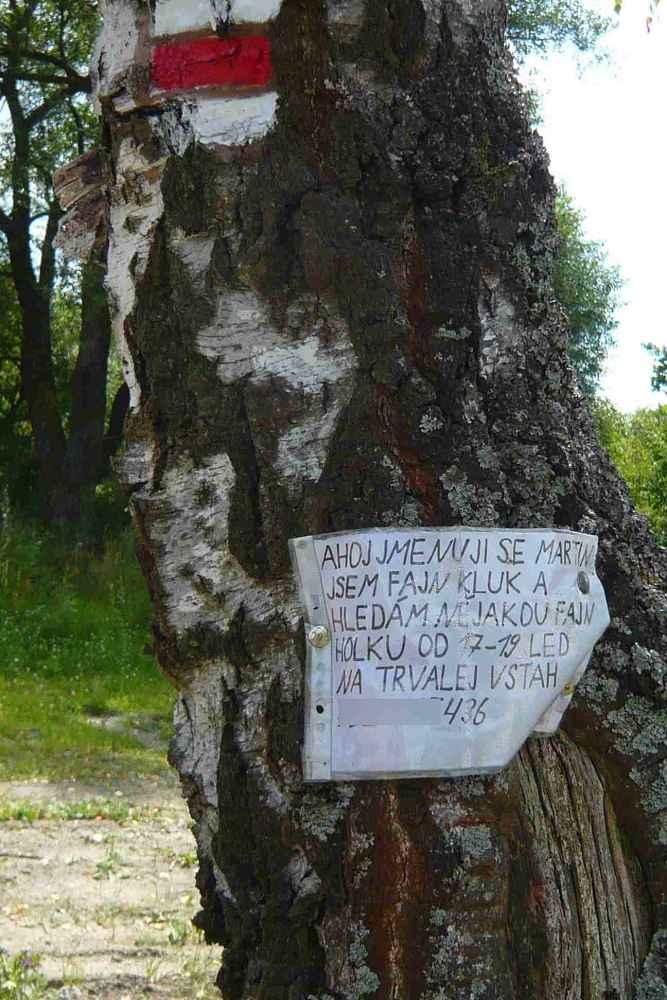 AHOJ JMENUJI SE MARTIN
JSEM FAJN KLUK A
HLEDÁM NĚJAKOU FAJN
HOLKU OD 17-19 LED
NA TRVALEJ VSTAH
436